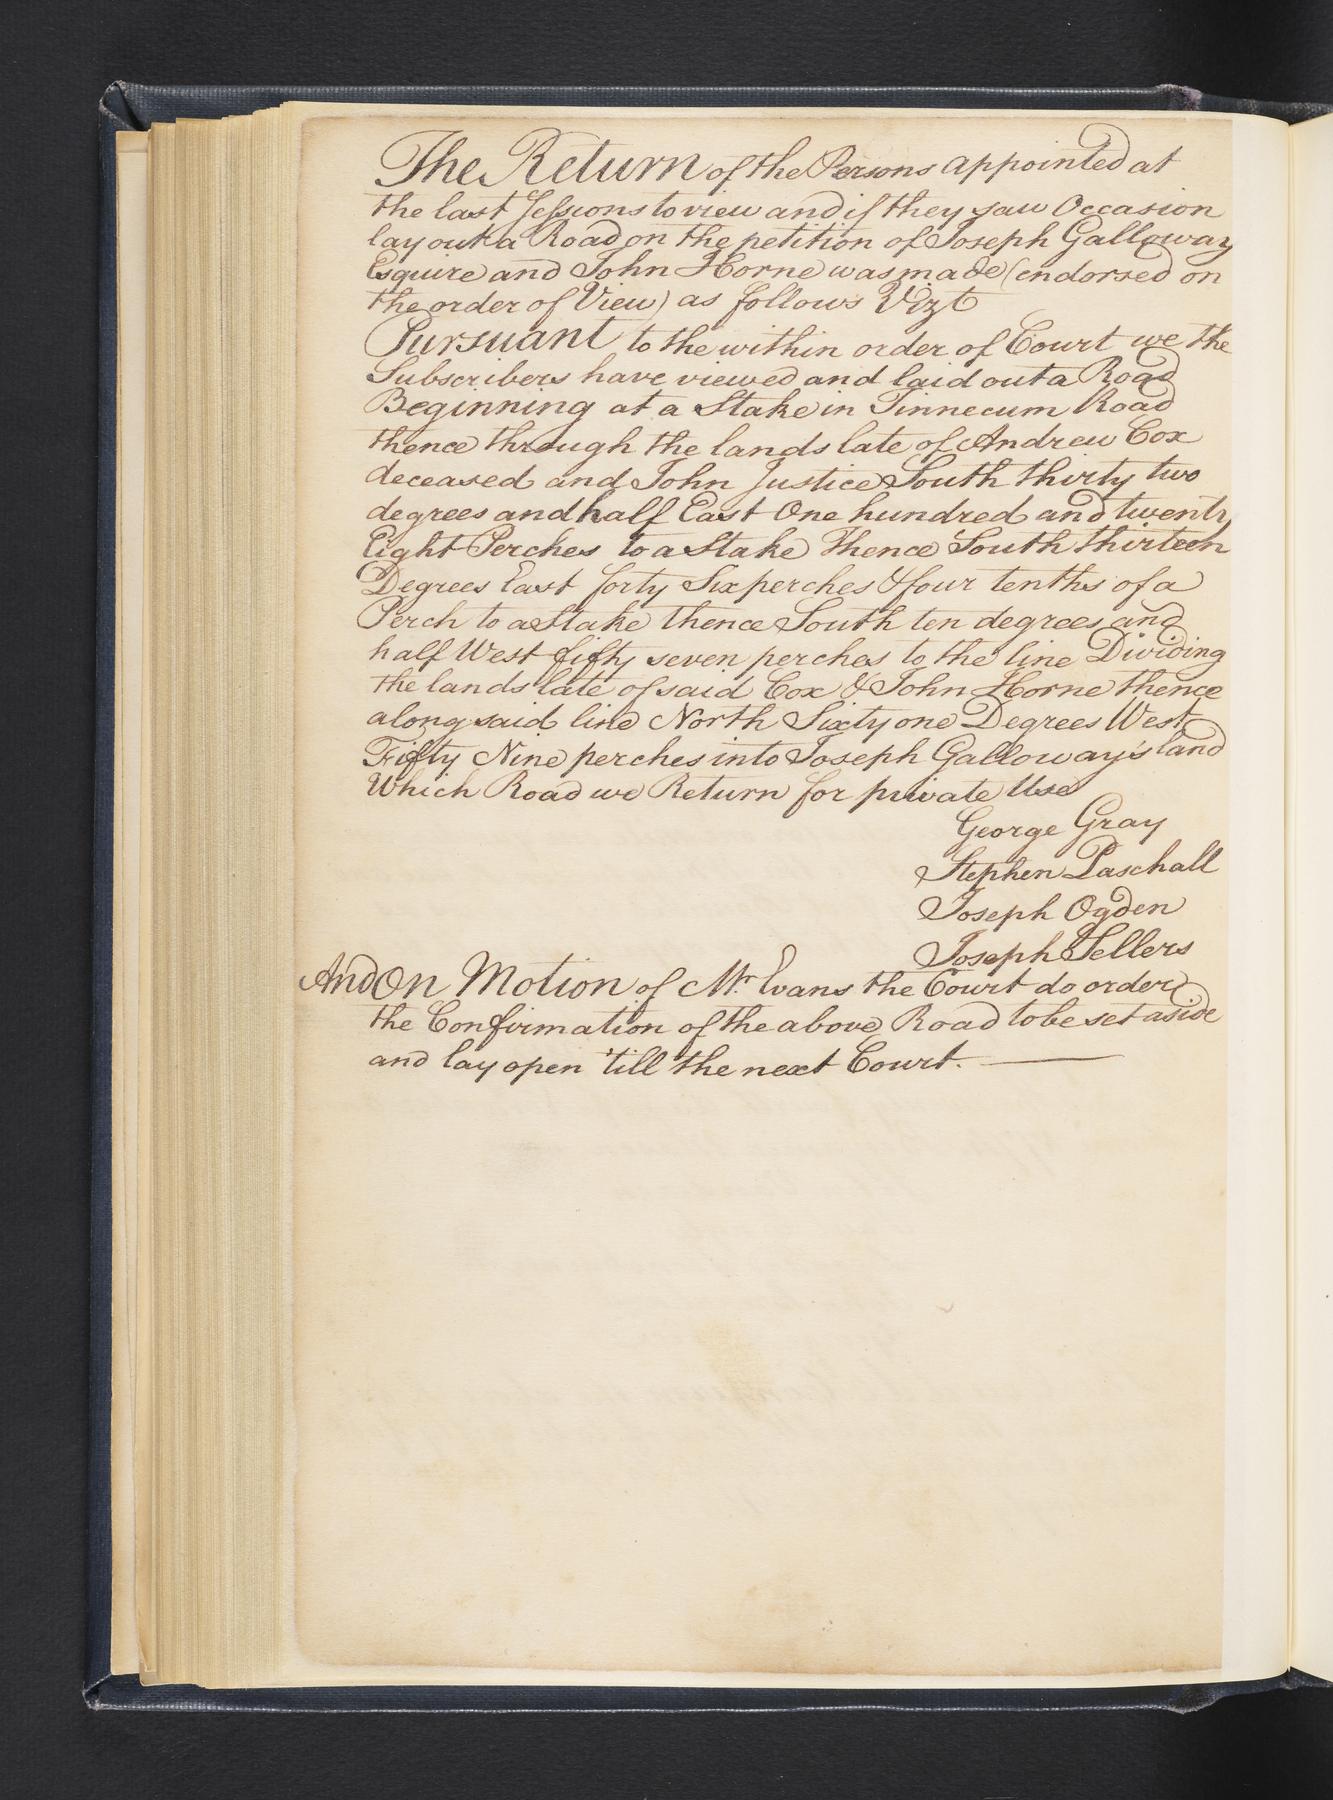 The Return of the Persons appointed at
the last Sessions to view and if they saw Occasion
lay out a Road on the petition of Joseph Galloway
Esquire and John Horne was made (endorsed on
the order of View) as follows Vizt
Pursuant to the within order of Court we the
Subscribers have viewed and laid out a Road
Beginning at a Stake in Tinnecum Road
thence through the lands late of Andrew Cox
deceased and John Justice South thirty two
degrees and half East One hundred and twenty
Eight Perches to a Stake Thence South thirteen
Degrees East forty Six perches & four tenths of a
Perch to a Stake thence South ten degrees and
half West fifty seven perches to the line Dividing
the lands late of said Cox & John Horne thence
along said line North Sixty one Degrees West
Fifty Nine perches into Joseph Galloway's land
Which Road we Return for private Use
George Gray
Stephen Paschall
Joseph Ogden
Joseph Sellers
And On Motion of Mr. Evans the Court do order
the Confirmation of the above Road to be set aside
and lay open 'till the next Court.